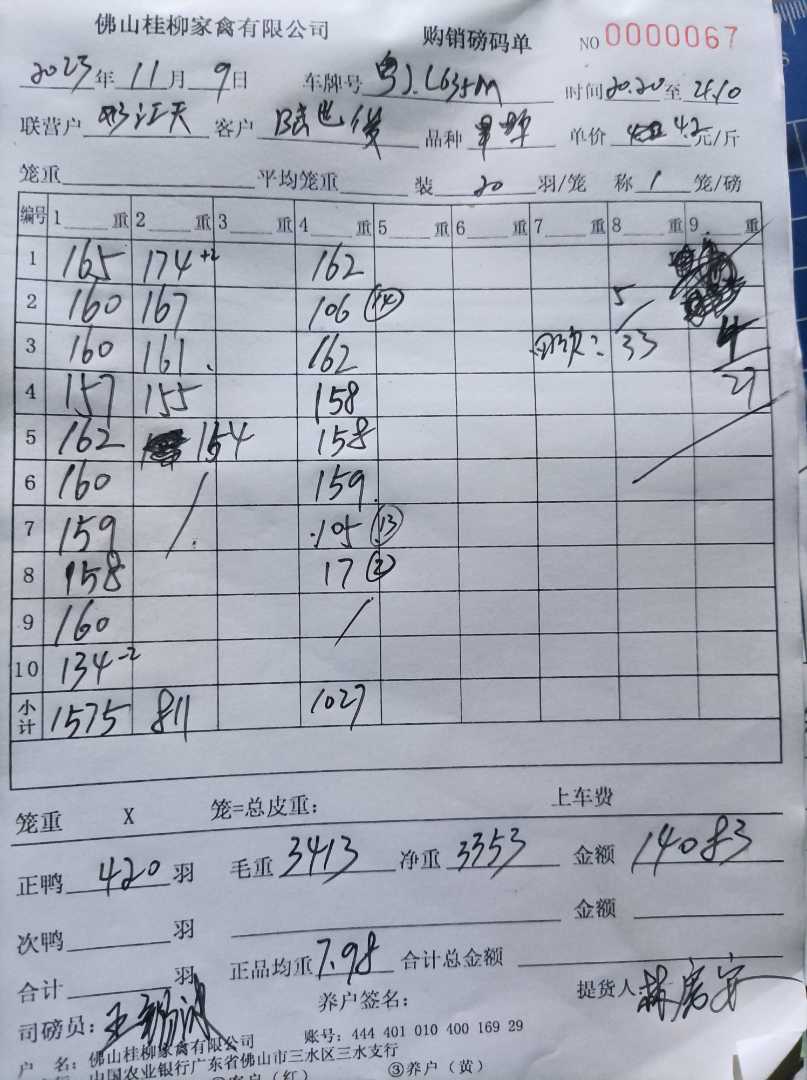 佛山桂柳家禽有限公司 购销磅码单 NO 0000067
2023年 11月 9日 车牌号 粤J.L635M 时间20.20至21.10
联营户 客户 品种 单价 4.2元/斤
笼重 平均笼重 装 20 羽/笼 称 1 笼/磅
编号 1 重 2 重 3 重 4 重 5 重 6 重 7 重 8 重 9 重
1 165 174+2 162
2 160 167 106 (14) 5
3 160 161. 162 33 4
4 157 155 158 27
5 162 154 158
6 160 / 159
7 159 105 (13)
8 158 17 (2)
9 160 /
10 134-2
小计 1575 811 1027
笼重 X 笼=总皮重: 上车费
正鸭 420 羽 毛重 3413 净重 3353 金额 14083
次鸭 羽 金额
合计 羽 正品均重 7.98 合计总金额
司磅员: 养户签名: 提货人
户 名: 佛山桂柳家禽有限公司 账号: 444 401 010 400 169 29
中国农业银行广东省佛山市三水区三水支行
②客户（红） ③养户（黄）